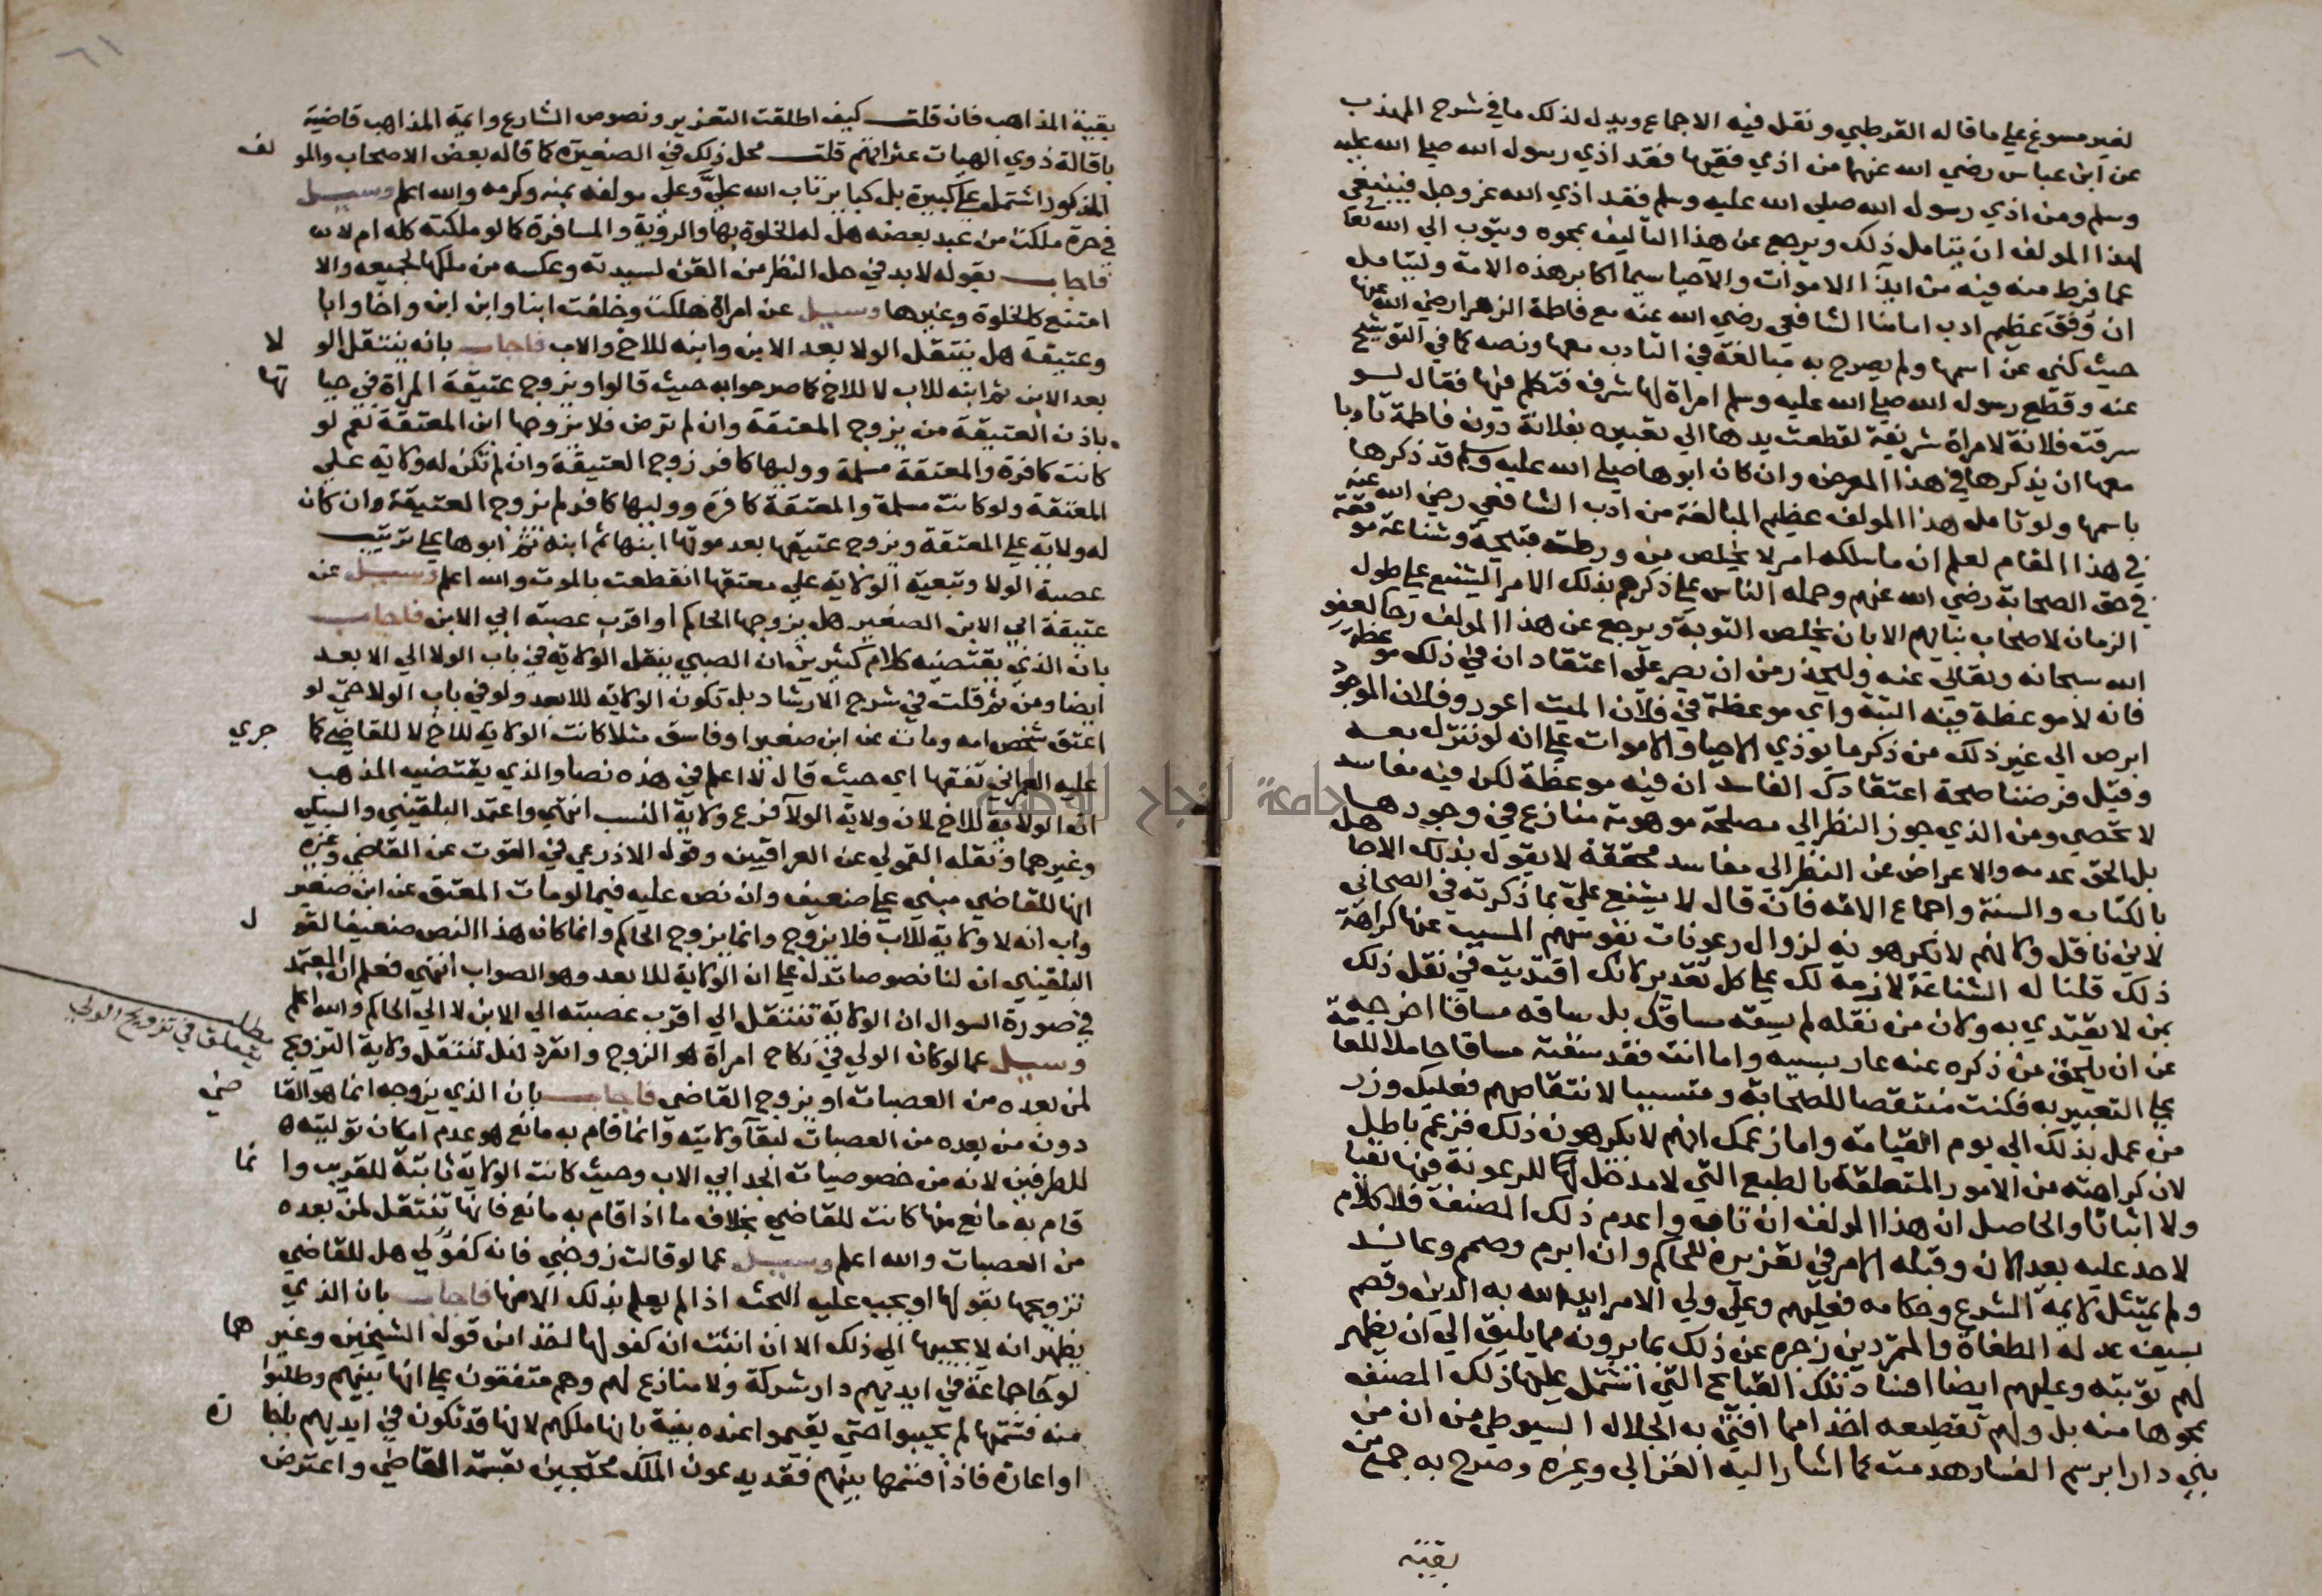 لغير مسوغ علي ما قاله القرطبي ونقل فيه الاجماع ويدل لذلك ما في شرح المهذب
عن ابن عباس رضي الله عنهما من اذي فقيها فقد اذي رسول الله صلي الله عليه
وسلم ومن اذي رسول الله صلي الله عليه وسلم فقد اذي الله عز وجل فينبغي
لهذا المولف ان يتامل ذلك ويرجع عن هذا التاليف بمحوه ويتوب الي الله تعا
عما فرط منه فيه من ايذا الاموات والاحيا سيما اكابر هذه الامة وليتامل
ان وفق عظيم ادب امامنا الشافعي رضي الله عنه مع فاطمة الزهرا رضي الله عنها
حيث كني عن اسمها ولم يصرح به مبالغة في التادب معها ونصه كما في التوشيح
عنه وقطع رسول الله صلي الله عليه وسلم امراة لها شرف فتكلم فيها فقال لو
سرقت فلانة لامراة شريفة لقطعت يدها الي تعبيره بفلانة دون فاطمة تادبا
معها ان يذكرها في هذا المعرض وان كان ابوها صلي الله عليه وسلم قد ذكرها
باسمها ولو تامل هذا المولف عظيم المبالغة من ادب الشافعي رضي الله عنه
في هذا المقام لعلم ان ما سلكه امر لا يخلص من ورطته قبيحة وشناعة موقعة
في حق الصحابة رضي الله عنهم وحمله الناس علي ذكرهم بذلك الامر الشنيع علي طول
الزمان لاصحاب نباتهم الا بان يخلص التوبة ويرجع عن هذا المولف رجا لعفو
الله سبحانه وتعالي عنه وليحذر من ان يصر علي اعتقاد ان في ذلك موعظة
فانه لا موعظة فيه البتة واي موعظة في فلان الميت اعور وفلان الموجود
ابرص الي غير ذلك من ذكر ما يوذي الاحيا والاموات علي انه لو تنزل معه
وقيل فرضنا صحة اعتقادك الفاسد ان فيه موعظة لكن فيه مفاسد
لا تحصي ومن الذي جوز النظر الي مصلحة موهومة منازع في وجودها
بل الحق عدمه والاعراض عن النظر الي مفاسد محققة لا يقول بذلك الا جاهل
بالكتاب والسنة واجماع الامة فان قال لا يشنع علي بما ذكرته في الصحابي
لاني ناقل ولانهم لا يكرهونه لزوال رعونات نفوسهم المسبب عنها كراهة
ذلك قلنا له الشناعة لازمة لك علي كل تقدير لانك اقتديت في نقل ذلك
بمن لا يقتدي به ولان من نقله لم يسقه مساقك بل ساقه مساقا اخرجه
عن ان يلحق من ذكره عنه عار بسببه واما انت فقد سقته مساقا حاملا للعامة
علي التعبير به فكنت منتقصا للصحابة ومتسببا لانتقاصهم فعليك وزر
من عمل بذلك الي يوم القيامة واما زعمك انهم لا يكرهون ذلك فزعم باطل
لان كراهته من الامور المتعلقة بالطبع التي لا مدخل لها للرعونة فيها نفيا
ولا اثباتا والحاصل ان هذا المولف ان تاب واعدم ذلك المصنف فلا كلام
لاحد عليه بعد الان وقبله الامر في تعزيره للحاكم وان ابرم وصمم وعاند
ولم يمتثل لايمة الشرع وحكامه فعليهم وعلي ولي الامر ايد الله به الدين وقصم
بسيف عدله الطغاة والمتمردين زجره عن ذلك بما يرونه مما يليق الي ان يظهر
لهم توبته وعليهم ايضا افنا وتلك القبايح التي اشتمل عليها ذلك المصنف
بمحوها منه بل ولهم تقطيعه اخذا مما افتي به الجلال السيوطي من ان من
بني دارا برسم الفساد هدمت كما اشار اليه الغزالي وغيره وصرح به جمع من
بقية
٦١
بقية المذاهب فان قلت كيف اطلقت التعزير ونصوص الشارع وايمة المذاهب قاضية
باقالة ذوي الهيات عثراتهم قلت محل ذلك في الصغيرة كما قاله بعض الاصحاب والمولف
المذكور اشتمل علي كبيرة بل كباير تاب الله علي وعلي مولفه بمنه وكرمه والله اعلم وسيل
في حرة ملكت من عبد بعضه هل له الخلوة بها والروية والمسافرة كما لو ملكته كله ام لا
فاجاب بقوله لا بد في حل النظر من القن لسيدته وعكسه من ملكها لجميعه والا
امتنع كالخلوة وغيرها وسيل عن امراة هلكت وخلفت ابنا وابن ابن واخا وابا
وعتيقة هل ينتقل الولا بعد الابن وابنه للاخ والاب فاجاب بانه ينتقل الولا
بعد الابن ثم ابنه للاب لا للاخ كما صرحوا به حيث قالوا ويزوج عتيقة المراة في حياتها
باذن العتيقة من يزوج المعتقة وان لم ترض فلا يزوجها ابن المعتقة نعم لو
كانت كافرة والمعتقة مسلمة ووليها كافر زوج العتيقة وان لم تكن له ولاية علي
المعتقة ولو كانت مسلمة والمعتقة كافرة ووليها كافر لم يزوج المعتيقة وان كان
له ولاية علي المعتقة ويزوج عتيقها بعد موتها ابنها ثم ابنه ثم ابوها علي ترتيب
عصبة الولا وتبعية الولاية علي معتقها انقطعت بالموت والله اعلم وسيل عن
عتيقة ابي الابن الصغير هل يزوجها الحاكم او اقرب عصبة ابي الابن فاجاب
بان الذي يقتضيه كلام كثيرين ان الصبي ينقل الولاية في باب الولا الي الابعد
ايضا ومن ثم قلت في شرح الارشاد بل تكون الولاية للابعد ولو في باب الولا حتي لو
اعتق شخص امه ومات عن ابن صغير او فاسق مثلا كانت الولاية للاخ لا للقاضي كما جري
عليه العمراني تفقها اي حيث قال لا اعلم في هذه نصا والذي يقتضيه المذهب
ان الولاية للاخ لان ولاية الولا فرع ولاية النسب انتهي واعتمد البلقيني والسبكي
وغيرهما ونقله القمولي عن العراقيين وقول الاذرعي في القوت عن القاضي وغيره
انها للقاضي مبني علي ضعيف وان نص عليه فيما لو مات المعتق عن ابن صغير
واب انه لا ولاية للاب فلا يزوج وانما يزوج الحاكم وانما كان هذا النص ضعيفا لقول
البلقيني ان لنا نصوصا تدل علي ان الولاية للابعد وهو الصواب انتهي فعلم ان المعتمد
في صورة السوال ان الولاية تنتقل الي اقرب عصبته الي الابن لا الي الحاكم والله اعلم
مطلب يتعلق في تزويج الولي
وسيل عما لو كان الولي في نكاح امراة هو الزوج وانفرد فهل تنتقل ولاية التزويج
لمن بعده من العصبات او يزوج القاضي فاجاب بان الذي يزوجه انما هو القاضي
دون من بعده من العصبات لبقا ولايته وانما قام به مانع هو عدم امكان توليته
للطرفين لانه من خصوصيات الجد ابي الاب وحيث كانت الولاية ثابتة للقريب وانما
قام به مانع منها كانت للقاضي بخلاف ما اذا قام به مانع فانها تنتقل لمن بعده
من العصبات والله اعلم وسيل عما لو قالت زوجني فانه كفو لي هل للقاضي
تزويجها بقولها او يجب عليه البحث اذا لم يعلم بذلك الا منها فاجاب بان الذي
يظهر انه لا يجيبها الي ذلك الا ان اثبتت ان كفو لها اخذا من قول الشيخين وغيرهما
لو جا جماعة في ايديهم دار شركة ولا منازع لهم وهم متفقون علي انها بينهم وطلبوا
منه قسمتها لم يجيبوا حتي يقيموا عنده بينة بانها ملكهم لانها قد تكون في ايديهم باجارة
او اعارة فاذا قسمها بينهم فقد يدعون الملك محتجين بقسمة القاضي واعترض
جامعة النجاح الوطنية